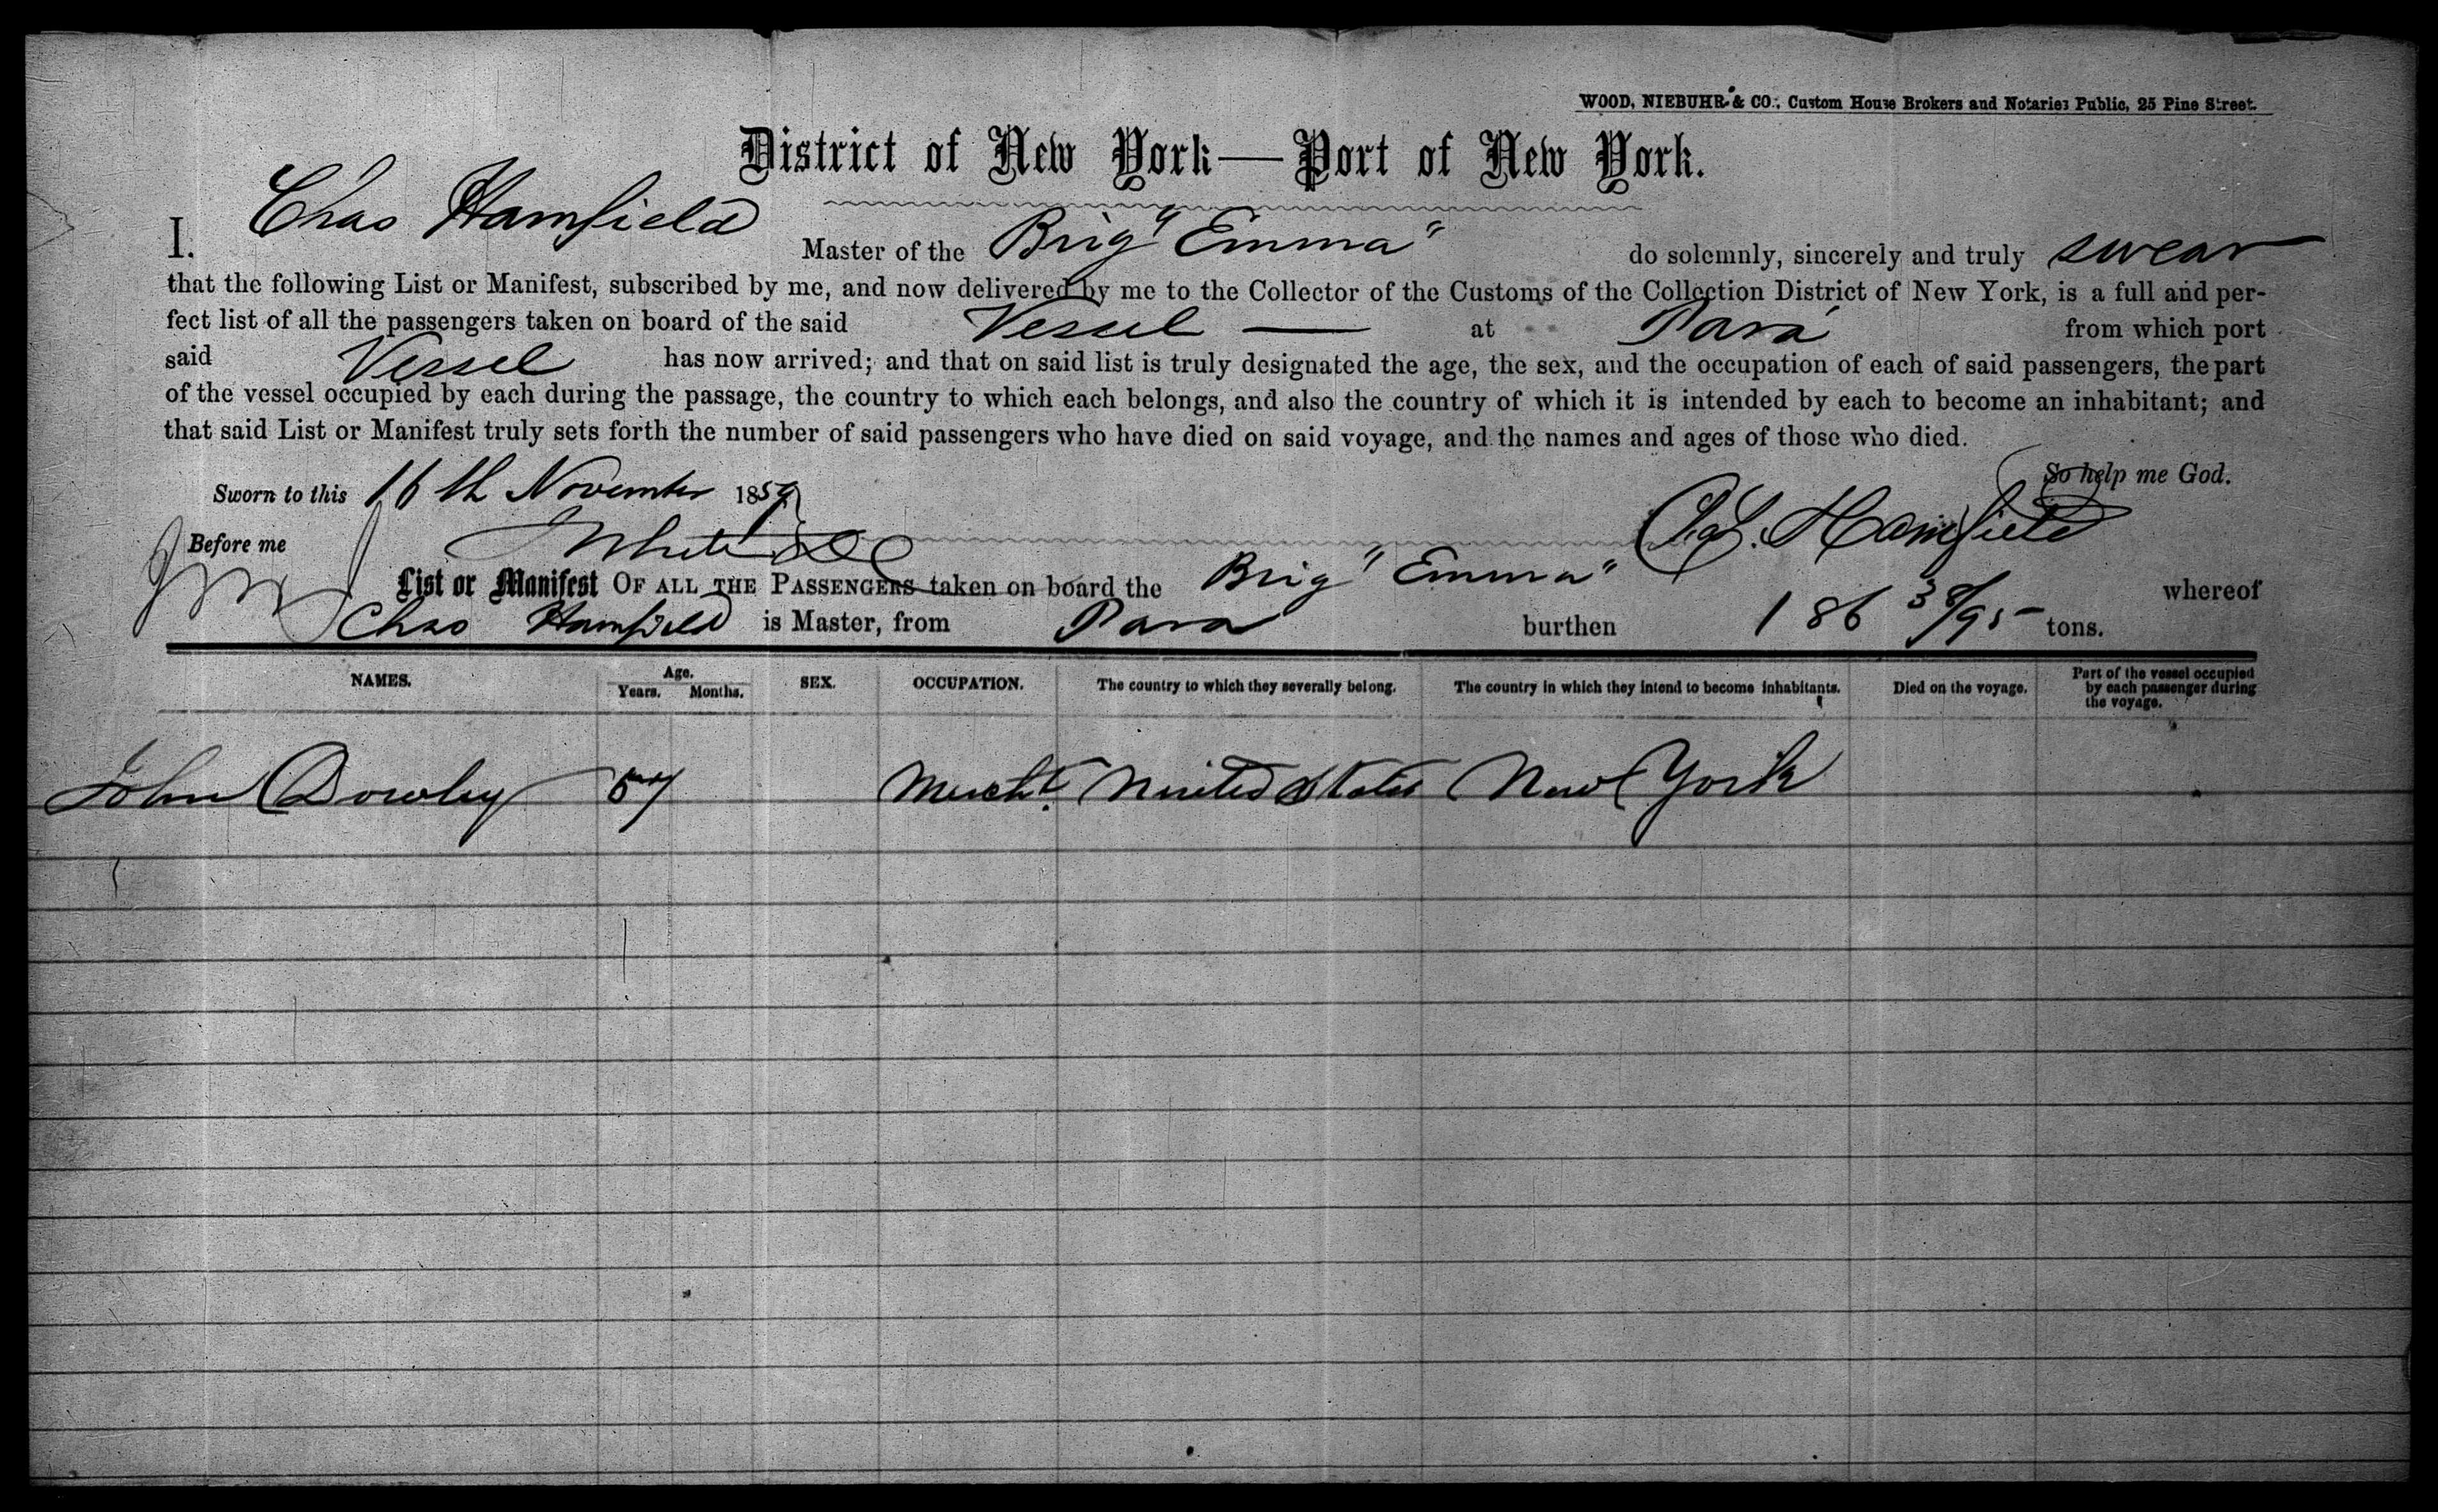 WOOD, NIEBUHR & CO., Custom House Brokers and Notaries Public, 25 Pine Street.
District of New York—Port of New York.
I. Chas Hamfield Master of the Brig "Emma" do solemnly, sincerely and truly swear
that the following List or Manifest, subscribed by me, and now delivered by me to the Collector of the Customs of the Collection District of New York, is a full and per-
fect list of all the passengers taken on board of the said Vessel — at Pará from which port
said Vessel has now arrived; and that on said list is truly designated the age, the sex, and the occupation of each of said passengers, the part
of the vessel occupied by each during the passage, the country to which each belongs, and also the country of which it is intended by each to become an inhabitant; and
that said List or Manifest truly sets forth the number of said passengers who have died on said voyage, and the names and ages of those who died.
So help me God.
Sworn to this 16th November 1859
Before me Chas. Hamfield
List or Manifest OF ALL THE PASSENGERS taken on board the Brig "Emma" whereof
Chas Hamfield is Master, from Para burthen 186 38/95 tons.
NAMES. Age. Years. Months. SEX. OCCUPATION. The country to which they severally belong. The country in which they intend to become inhabitants. Died on the voyage. Part of the vessel occupied by each passenger during the voyage.
John Dowley 57 Mercht. United States New York